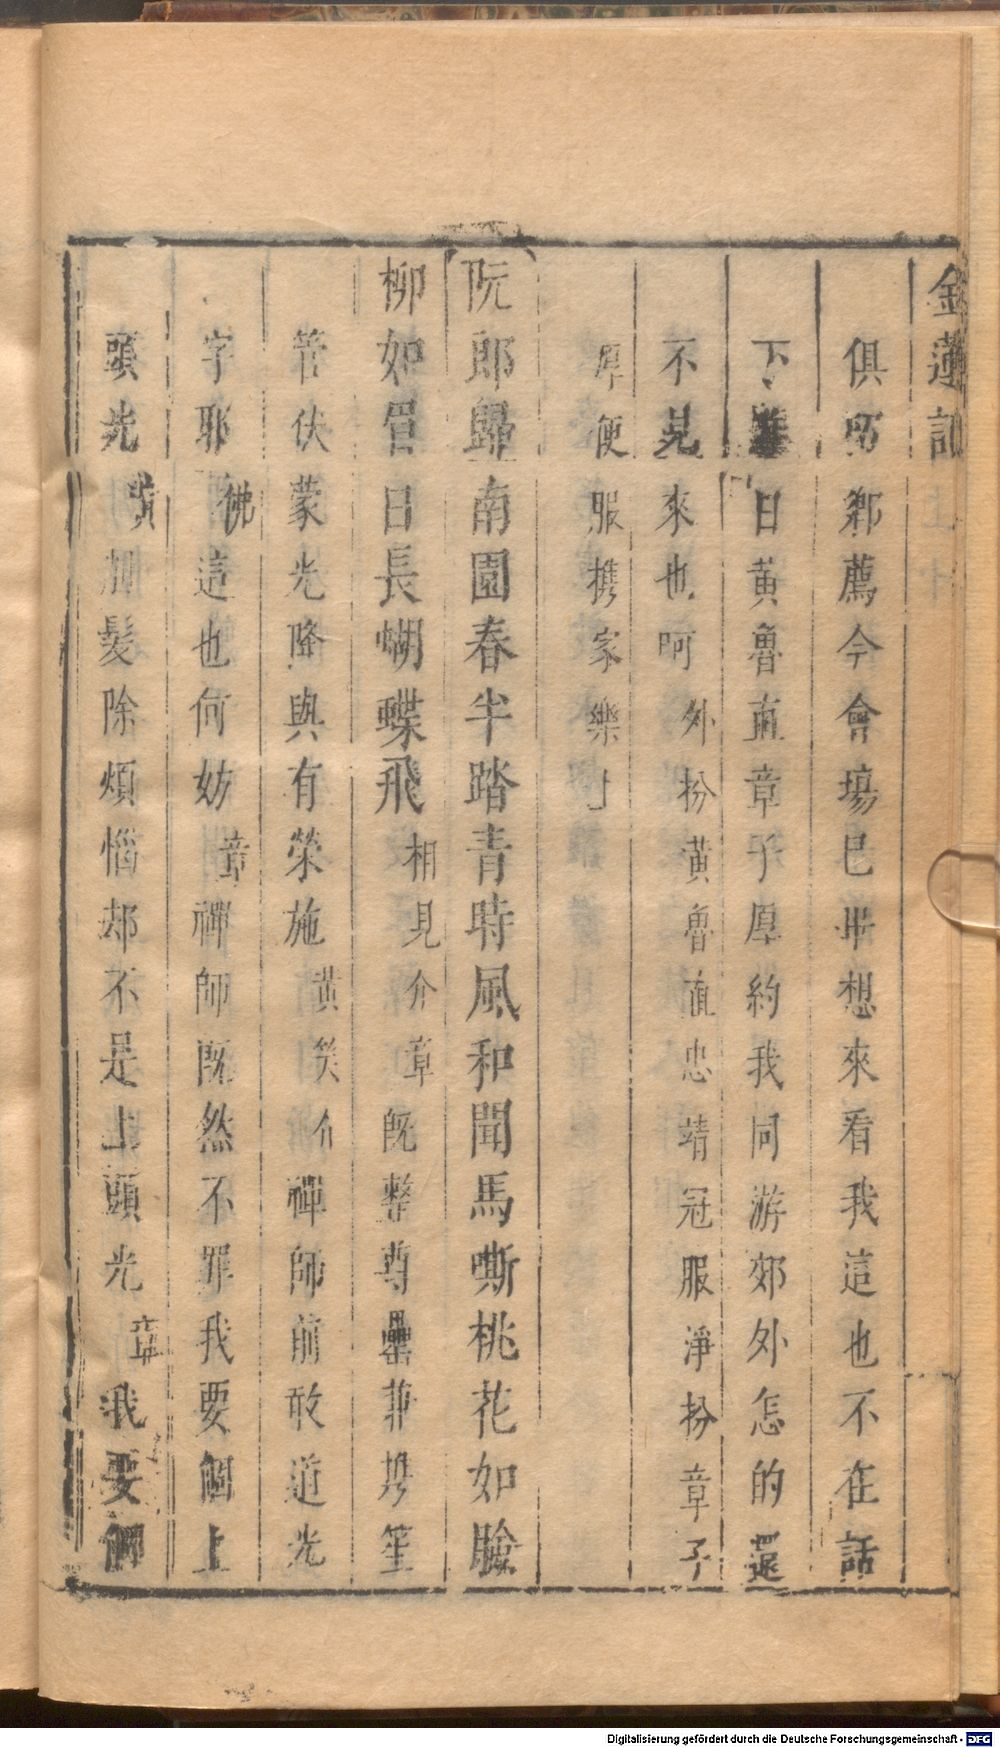 金蓮記
俱邱鄰薦今會場已畢想來看我這也不在話
下日黃魯直章子厚約我同游郊外怎的還
不見來也呵外扮黃魯直忠靖冠服淨扮章子
厚便服携家樂上
阮郎歸南園春半踏青時風和聞馬嘶桃花如臉
柳如眉日長蝴蝶飛相見介章旣整尊罍兼携笙
管伏蒙光降與有榮施黃笑介禪師前敢道光
字耶佛這也何妨章禪師旣然不罪我要個上
頭光黃加髮除煩惱却不是上頭光章我要個
Digitalisierung gefördert durch die Deutsche Forschungsgemeinschaft - DFG